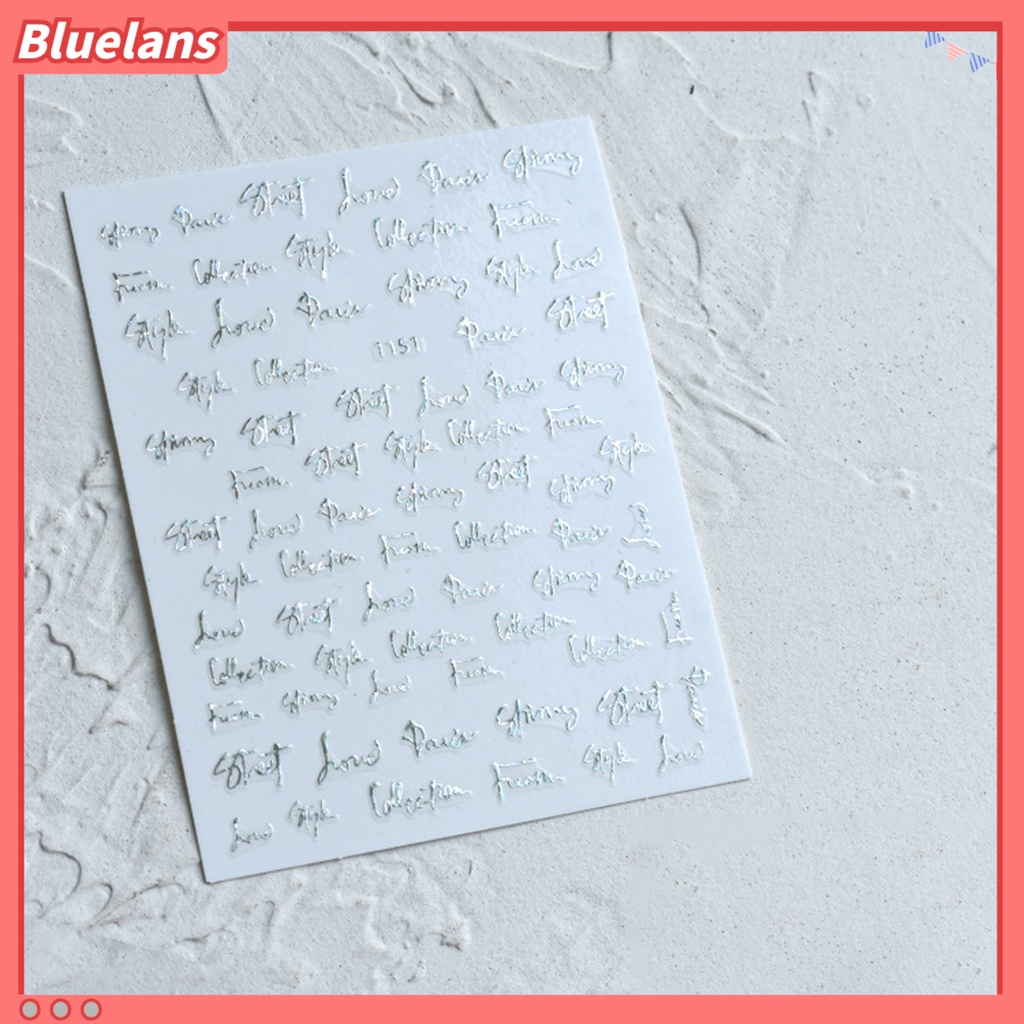 Bluelans
Street Love Paris Spring
Spring Paris
Style Collection From
From Collection
Style Love Paris Spring Style Love
1151 Paris Street
Style Collection
Street Love Paris Spring
Spring Street
Street Style Collection From
From Street Style
Street Love Paris Spring Spring
Style Collection From Collection Paris Love
Love Street Love Paris Spring Paris
Collection Style Collection Collection Collection From
From Spring Love From
Street Love Paris Spring Street Paris
Love Style Collection From Style Love